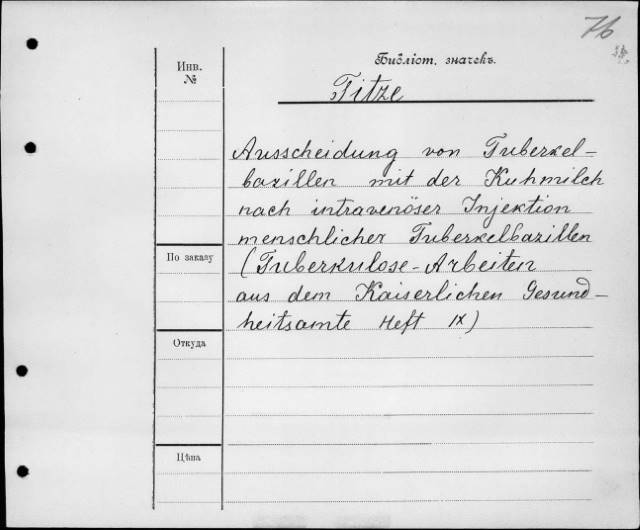 76
Библіот. значекъ.
Инв.
№
Titze
Ausscheidung von Tuberkel-
bazillen mit der Kuhmilch
nach intravenöser Injektion
menschlicher Tuberkelbazillen
(Tuberkulose-Arbeiten
aus dem Kaiserlichen Gesund-
heitsamte Heft IX)
По заказу
Откуда
Цѣна